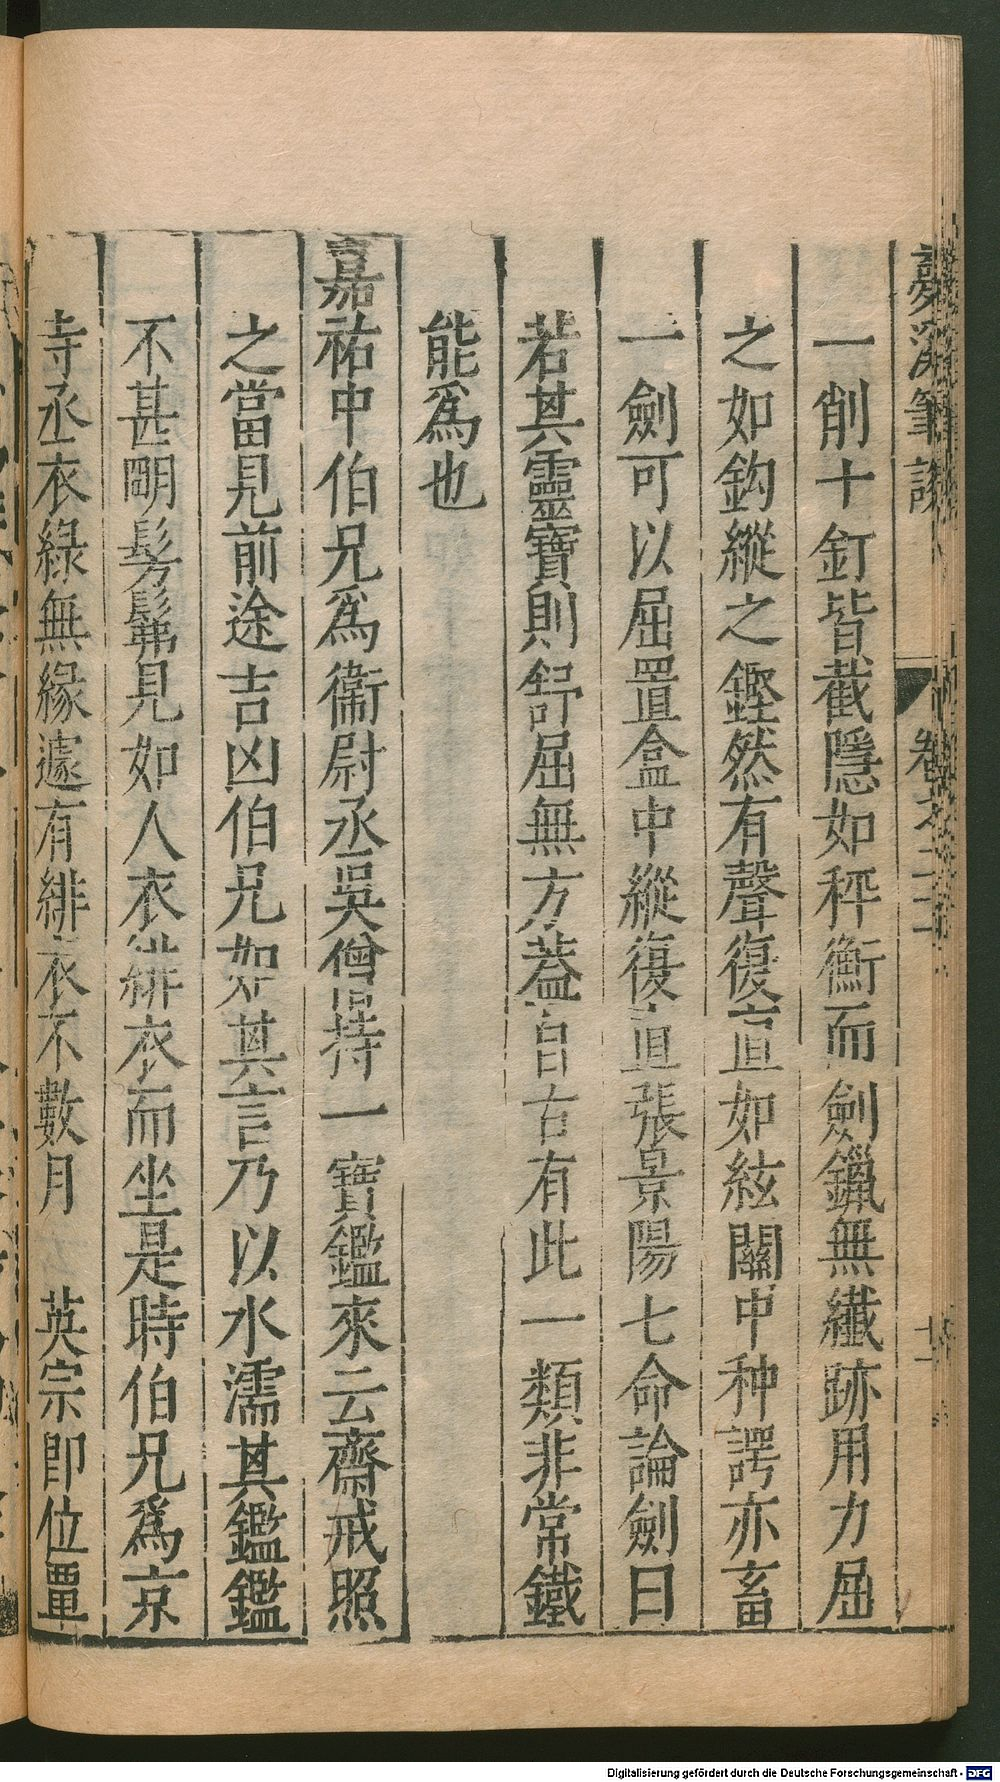 夢溪筆談 卷之二十一 十一
一削十釘皆截隱如秤衡而劍鑞無纖跡用力屈
之如鈎縱之鏗然有聲復直如絃關中种諤亦畜
一劍可以屈置盒中縱復直張景陽七命論劍曰
若其靈寶則舒屈無方蓋自古有此一類非常鐵
能爲也
嘉祐中伯兄爲衞尉丞吳僧持一寶鑑來云齋戒照
之當見前途吉凶伯兄如其言乃以水濡其鑑鑑
不甚明髣髴見如人衣緋衣而坐是時伯兄爲京
寺丞衣綠無緣遽有緋衣不數月 英宗卽位覃
Digitalisierung gefördert durch die Deutsche Forschungsgemeinschaft - DFG